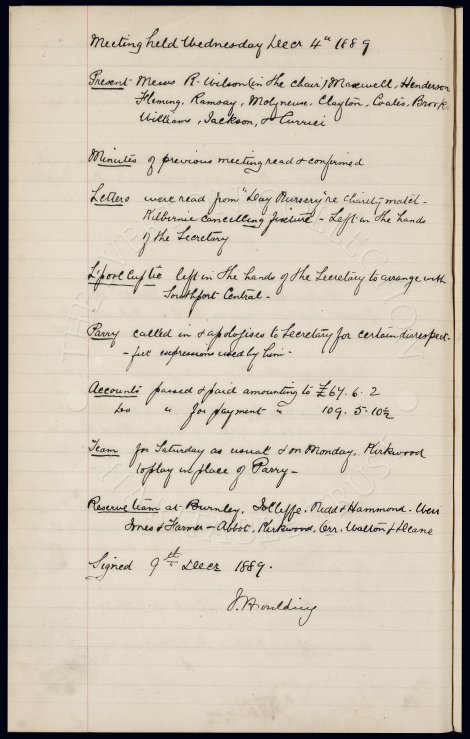 Meeting held Wednesday Decr 4th 1889
Present Messrs R. Wilson (in the chair) Maxwell, Henderson
Fleming, Ramsay, Molyneux, Clayton, Coates, Brooks
Williams, Jackson, & Currier
Minutes of previous meeting read & confirmed
Letters were read from "Day Nursery" re charity match -
Kilbernie cancelling fixture - Left in the hands
of the Secretary
L'pool Cup tie left in the hands of the Secretary to arrange with
Southport Central -
Parry called in & apologises to Secretary for certain disrespect-
-ful expressions used by him -
Accounts passed & paid amounting to £67. 6. 2
Do " for payment " 109. 5. 10½
Team for Saturday as usual & on Monday, Kirkwood
to play in place of Parry -
Reserve team at Burnley, Jolliffe, & Hammond. Weir
Jones & Farmer - Abbot, Kirkwood, Orr, Walton & Deane
Signed 9th Decr 1889.
J. Houlding
THE EVERTON COLLECTION
CHARITABLE TRUST